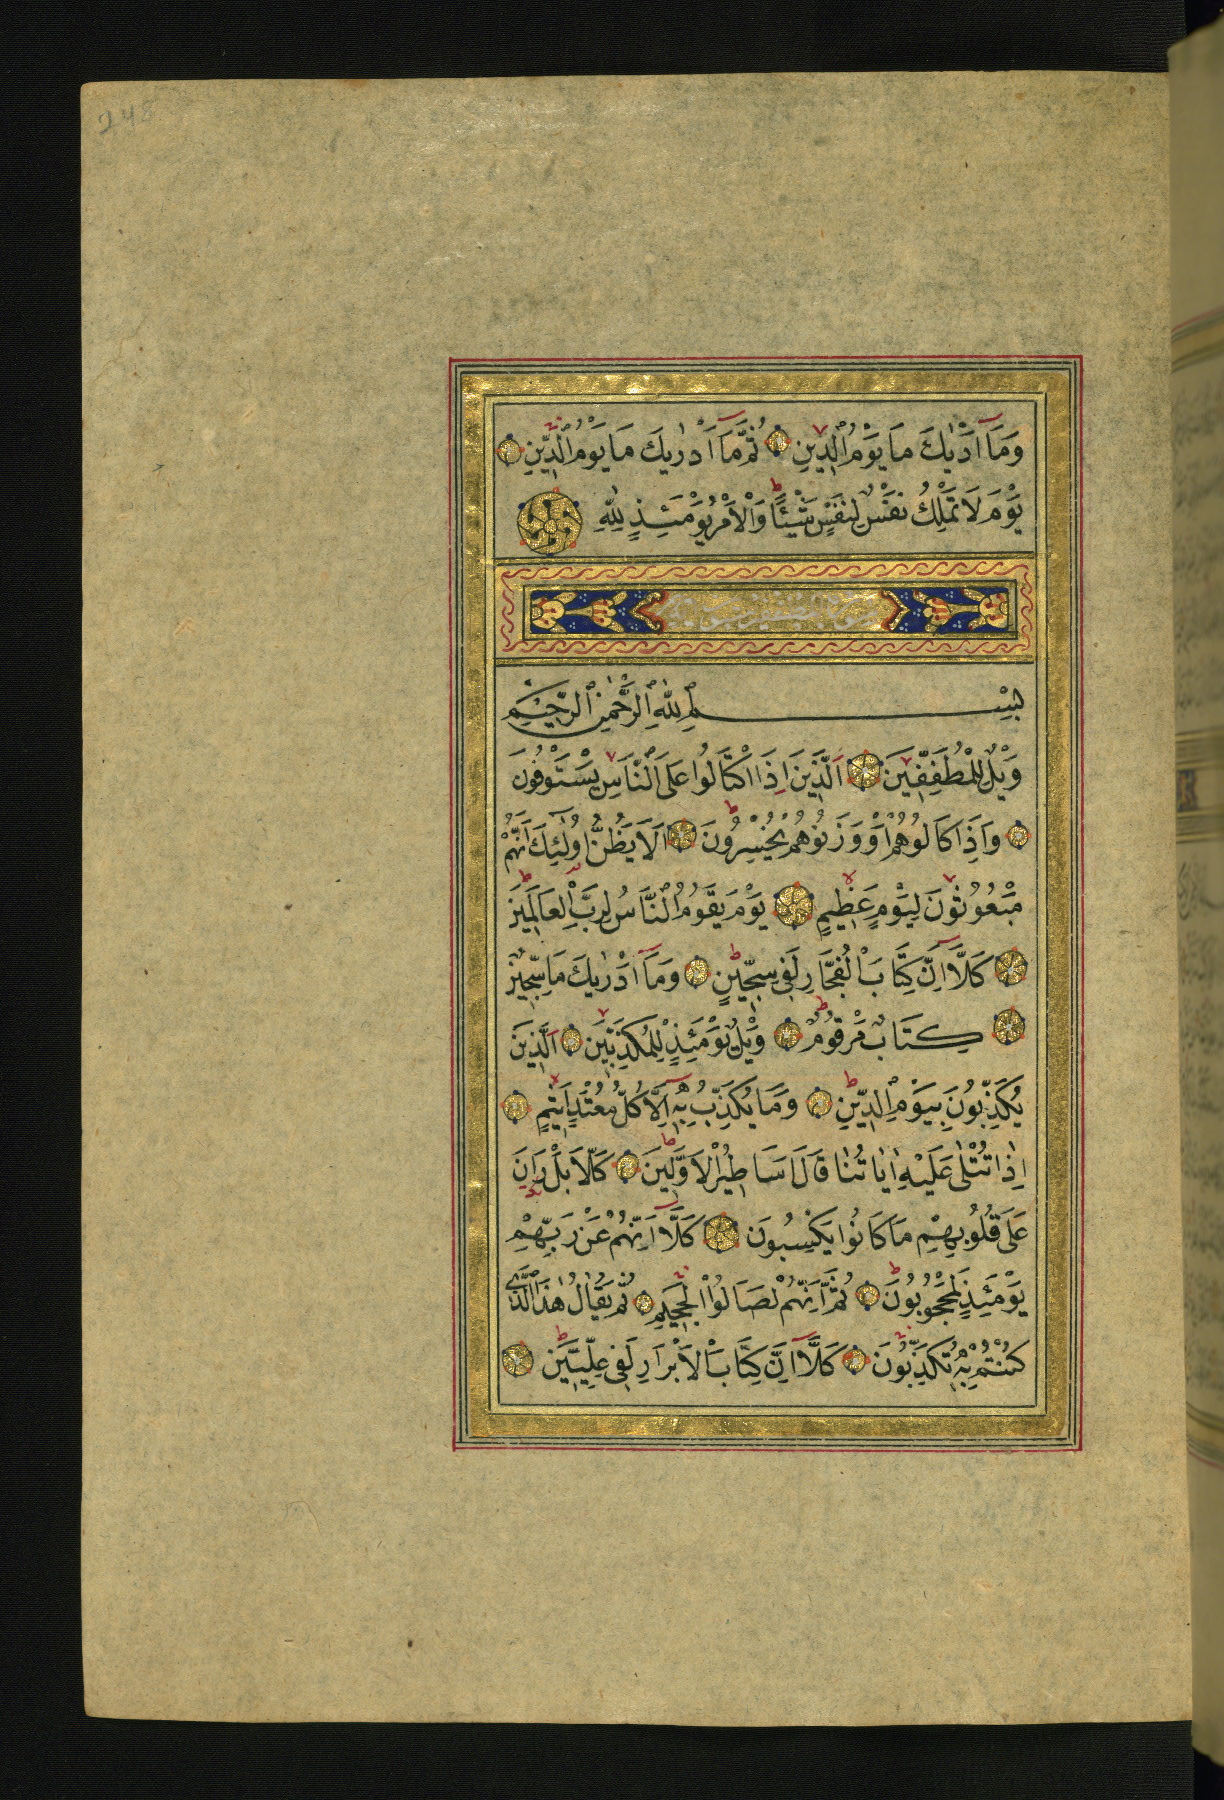 248
وَمَآ اَدْرٰيكَ مَا يَوْمُ الدِّينِ ثُمَّ مَآ اَدْرٰيكَ مَا يَوْمُ الدِّينِ
يَوْمَ لَا تَمْلِكُ نَفْسٌ لِنَفْسٍ شَيْئًا وَالْاَمْرُ يَوْمَئِذٍ لِلّٰهِ
بِسْمِ اللّٰهِ الرَّحْمٰنِ الرَّحِيمِ
وَيْلٌ لِلْمُطَفِّفِينَ اَلَّذِينَ اِذَا اكْتَالُوا عَلَى النَّاسِ يَسْتَوْفُونَ
وَاِذَا كَالُوهُمْ اَوْ وَزَنُوهُمْ يُخْسِرُونَ اَلَا يَظُنُّ اُولٰئِكَ اَنَّهُمْ
مَبْعُوثُونَ لِيَوْمٍ عَظِيمٍ يَوْمَ يَقُومُ النَّاسُ لِرَبِّ الْعَالَمِينَ
كَلَّآ اِنَّ كِتَابَ الْفُجَّارِ لَفِى سِجِّينٍ وَمَآ اَدْرٰيكَ مَا سِجِّينٌ
كِتَابٌ مَرْقُومٌ وَيْلٌ يَوْمَئِذٍ لِلْمُكَذِّبِينَ اَلَّذِينَ
يُكَذِّبُونَ بِيَوْمِ الدِّينِ وَمَا يُكَذِّبُ بِهِٓ اِلَّا كُلُّ مُعْتَدٍ اَثِيمٍ
اِذَا تُتْلٰى عَلَيْهِ اٰيَاتُنَا قَالَ اَسَاطِيرُ الْاَوَّلِينَ كَلَّا بَلْ رَانَ
عَلٰى قُلُوبِهِمْ مَا كَانُوا يَكْسِبُونَ كَلَّآ اِنَّهُمْ عَنْ رَبِّهِمْ
يَوْمَئِذٍ لَمَحْجُوبُونَ ثُمَّ اِنَّهُمْ لَصَالُوا الْجَحِيمِ ثُمَّ يُقَالُ هٰذَا الَّذِى
كُنْتُمْ بِهِ تُكَذِّبُونَ كَلَّآ اِنَّ كِتَابَ الْاَبْرَارِ لَفِى عِلِّيِّينَ